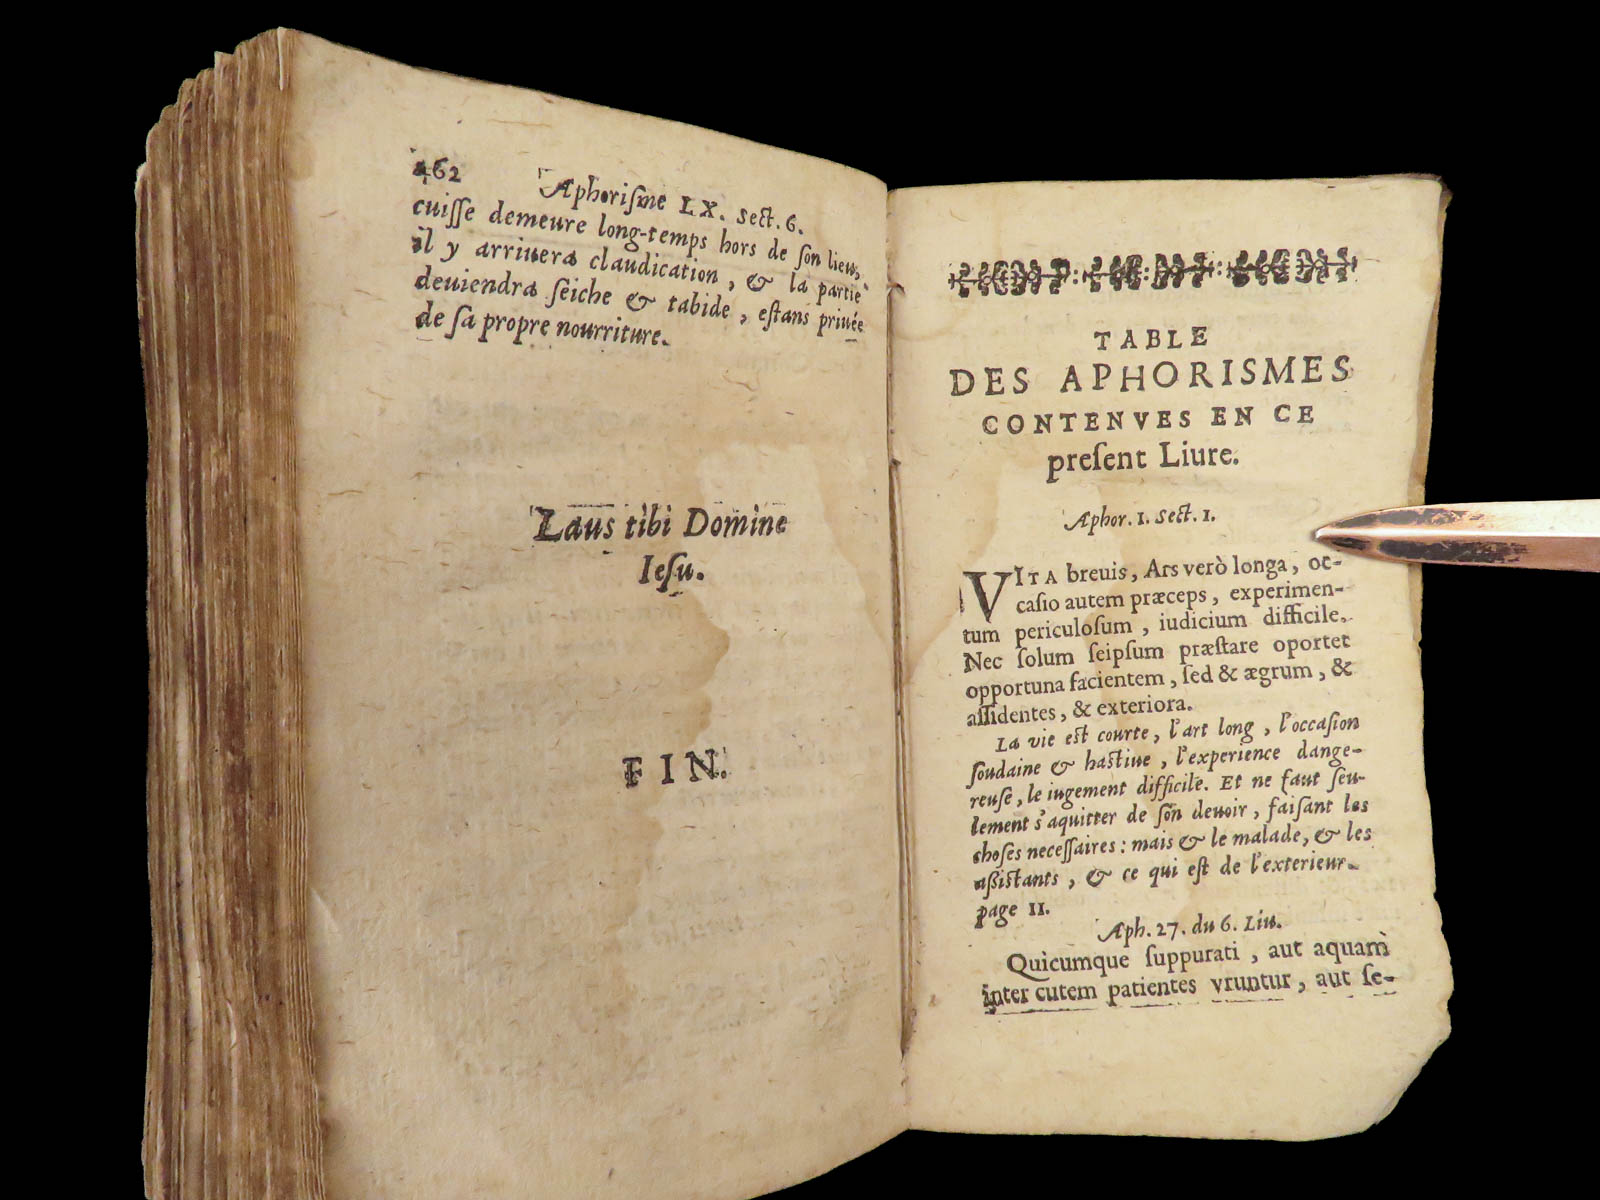 462
Aphoriſme LX. Sect. 6.
cuiſſe demeure long-temps hors de ſon lieu,
il y arriuera claudication, & la partie
deuiendra ſeiche & tabide, eſtans priuée
de ſa propre nourriture.
Laus tibi Domine
Ieſu.
FIN.
TABLE
DES APHORISMES
CONTENVES EN CE
preſent Liure.
Aphor. 1. Sect. 1.
VITA breuis, Ars verò longa, oc-
caſio autem præceps, experimen-
tum periculoſum, iudicium difficile.
Nec ſolum ſeipſum præſtare oportet
opportuna facientem, ſed & ægrum, &
aſſidentes, & exteriora.
La vie est courte, l'art long, l'occaſion
ſoudaine & hastiue, l'experience dange-
reuſe, le iugement difficile. Et ne faut ſeu-
lement s'aquitter de ſon deuoir, faiſant les
choſes neceſſaires: mais & le malade, & les
aßistants, & ce qui eſt de l'exterieur.
page 11.
Aph. 27. du 6. Liu.
Quicumque ſuppurati, aut aquam
inter cutem patientes vruntur, aut ſe-